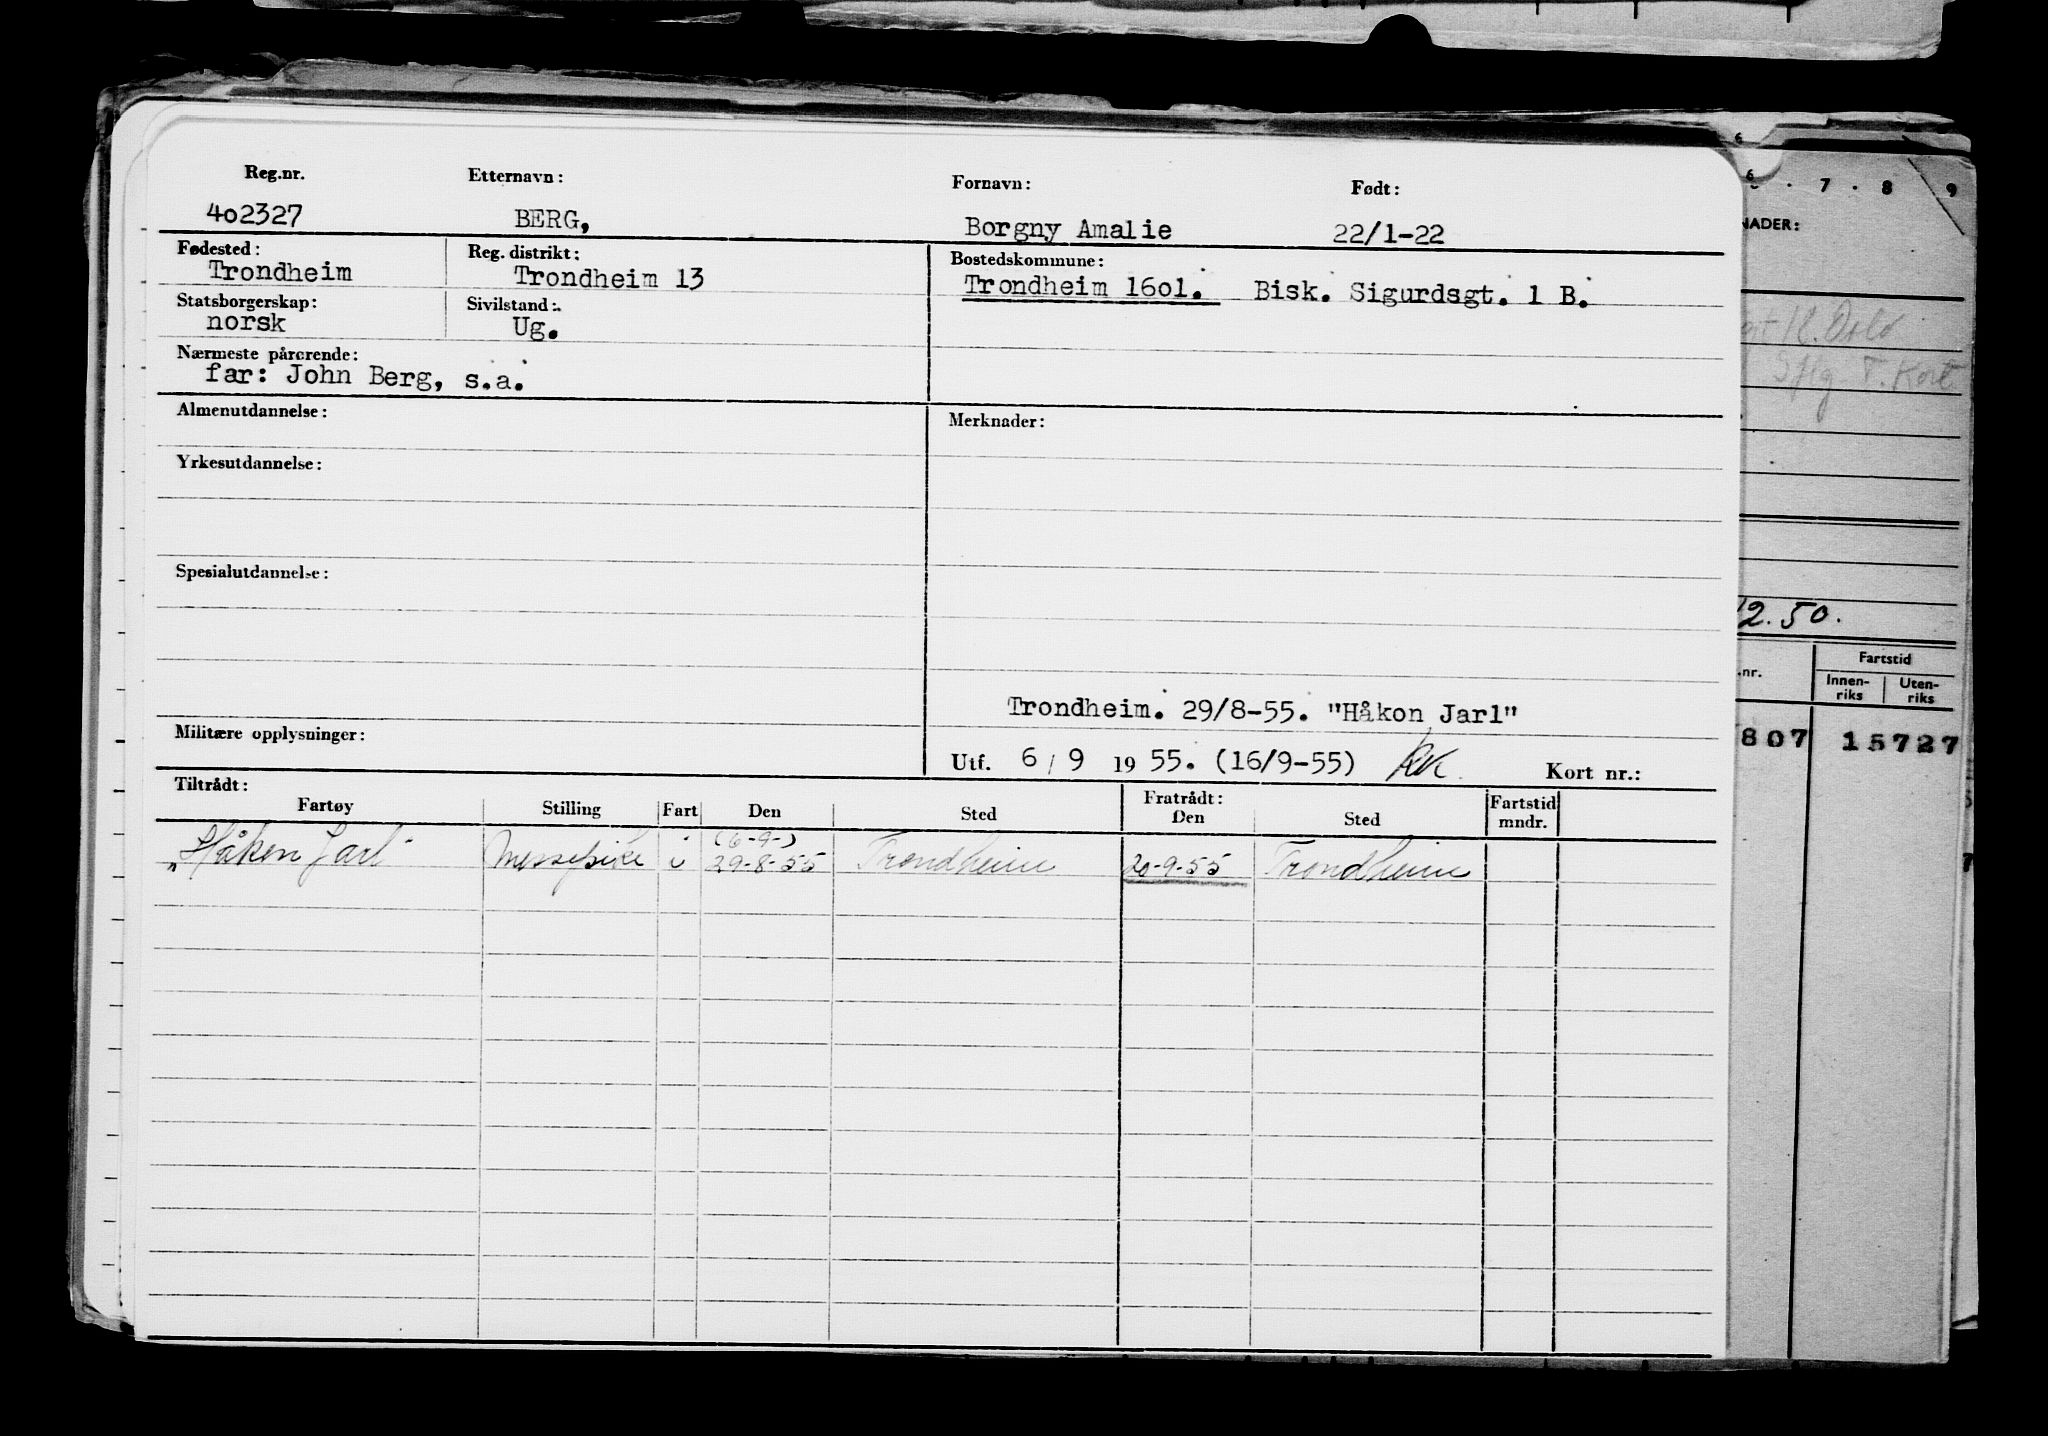 Reg.nr. Etternavn: Fornavn: Født:
402327 BERG, Borgny Amalie 22/1-22
Fødested: Reg. distrikt: Bostedskommune:
Trondheim Trondheim 13 Trondheim 16o1. Bisk. Sigurdsgt. 1 B.
Statsborgerskap: Sivilstand:
norsk Ug.
Nærmeste pårørende:
far: John Berg, s.a.
Almenutdannelse: Merknader:
Yrkesutdannelse:
Spesialutdannelse:
Trondheim. 29/8-55. "Håkon Jarl"
Militære opplysninger:
Utf. 6 / 9 19 55. (16/9-55) KK. Kort nr.:
Tiltrådt: Fratrådt: Fartstid
Fartøy Stilling Fart Den Sted Den Sted mndr.
(6-9-)
"Håken Jarl" Messepike i 29-8-55 Trondheim 20-9-55 Trondheim
6
6 . 7 . 8 9
NADER:
K. Oslo
T. Kort
12.50.
.nr. Fartstid
Innen-riks Uten-riks
807 15727